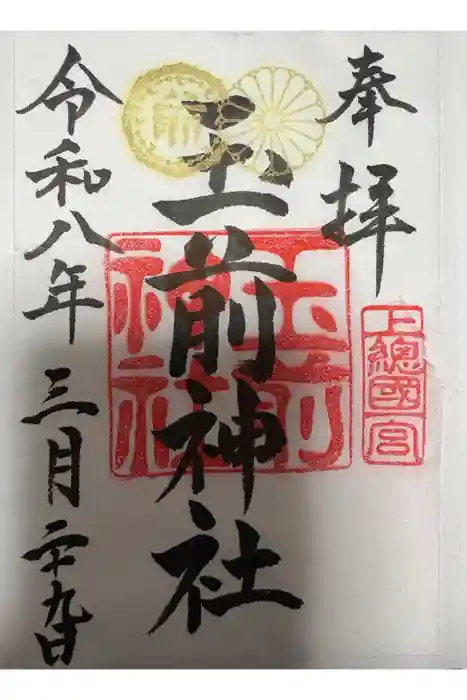 奉拝
上總國宮
玉前神社
玉前神社
令和八年三月二十九日